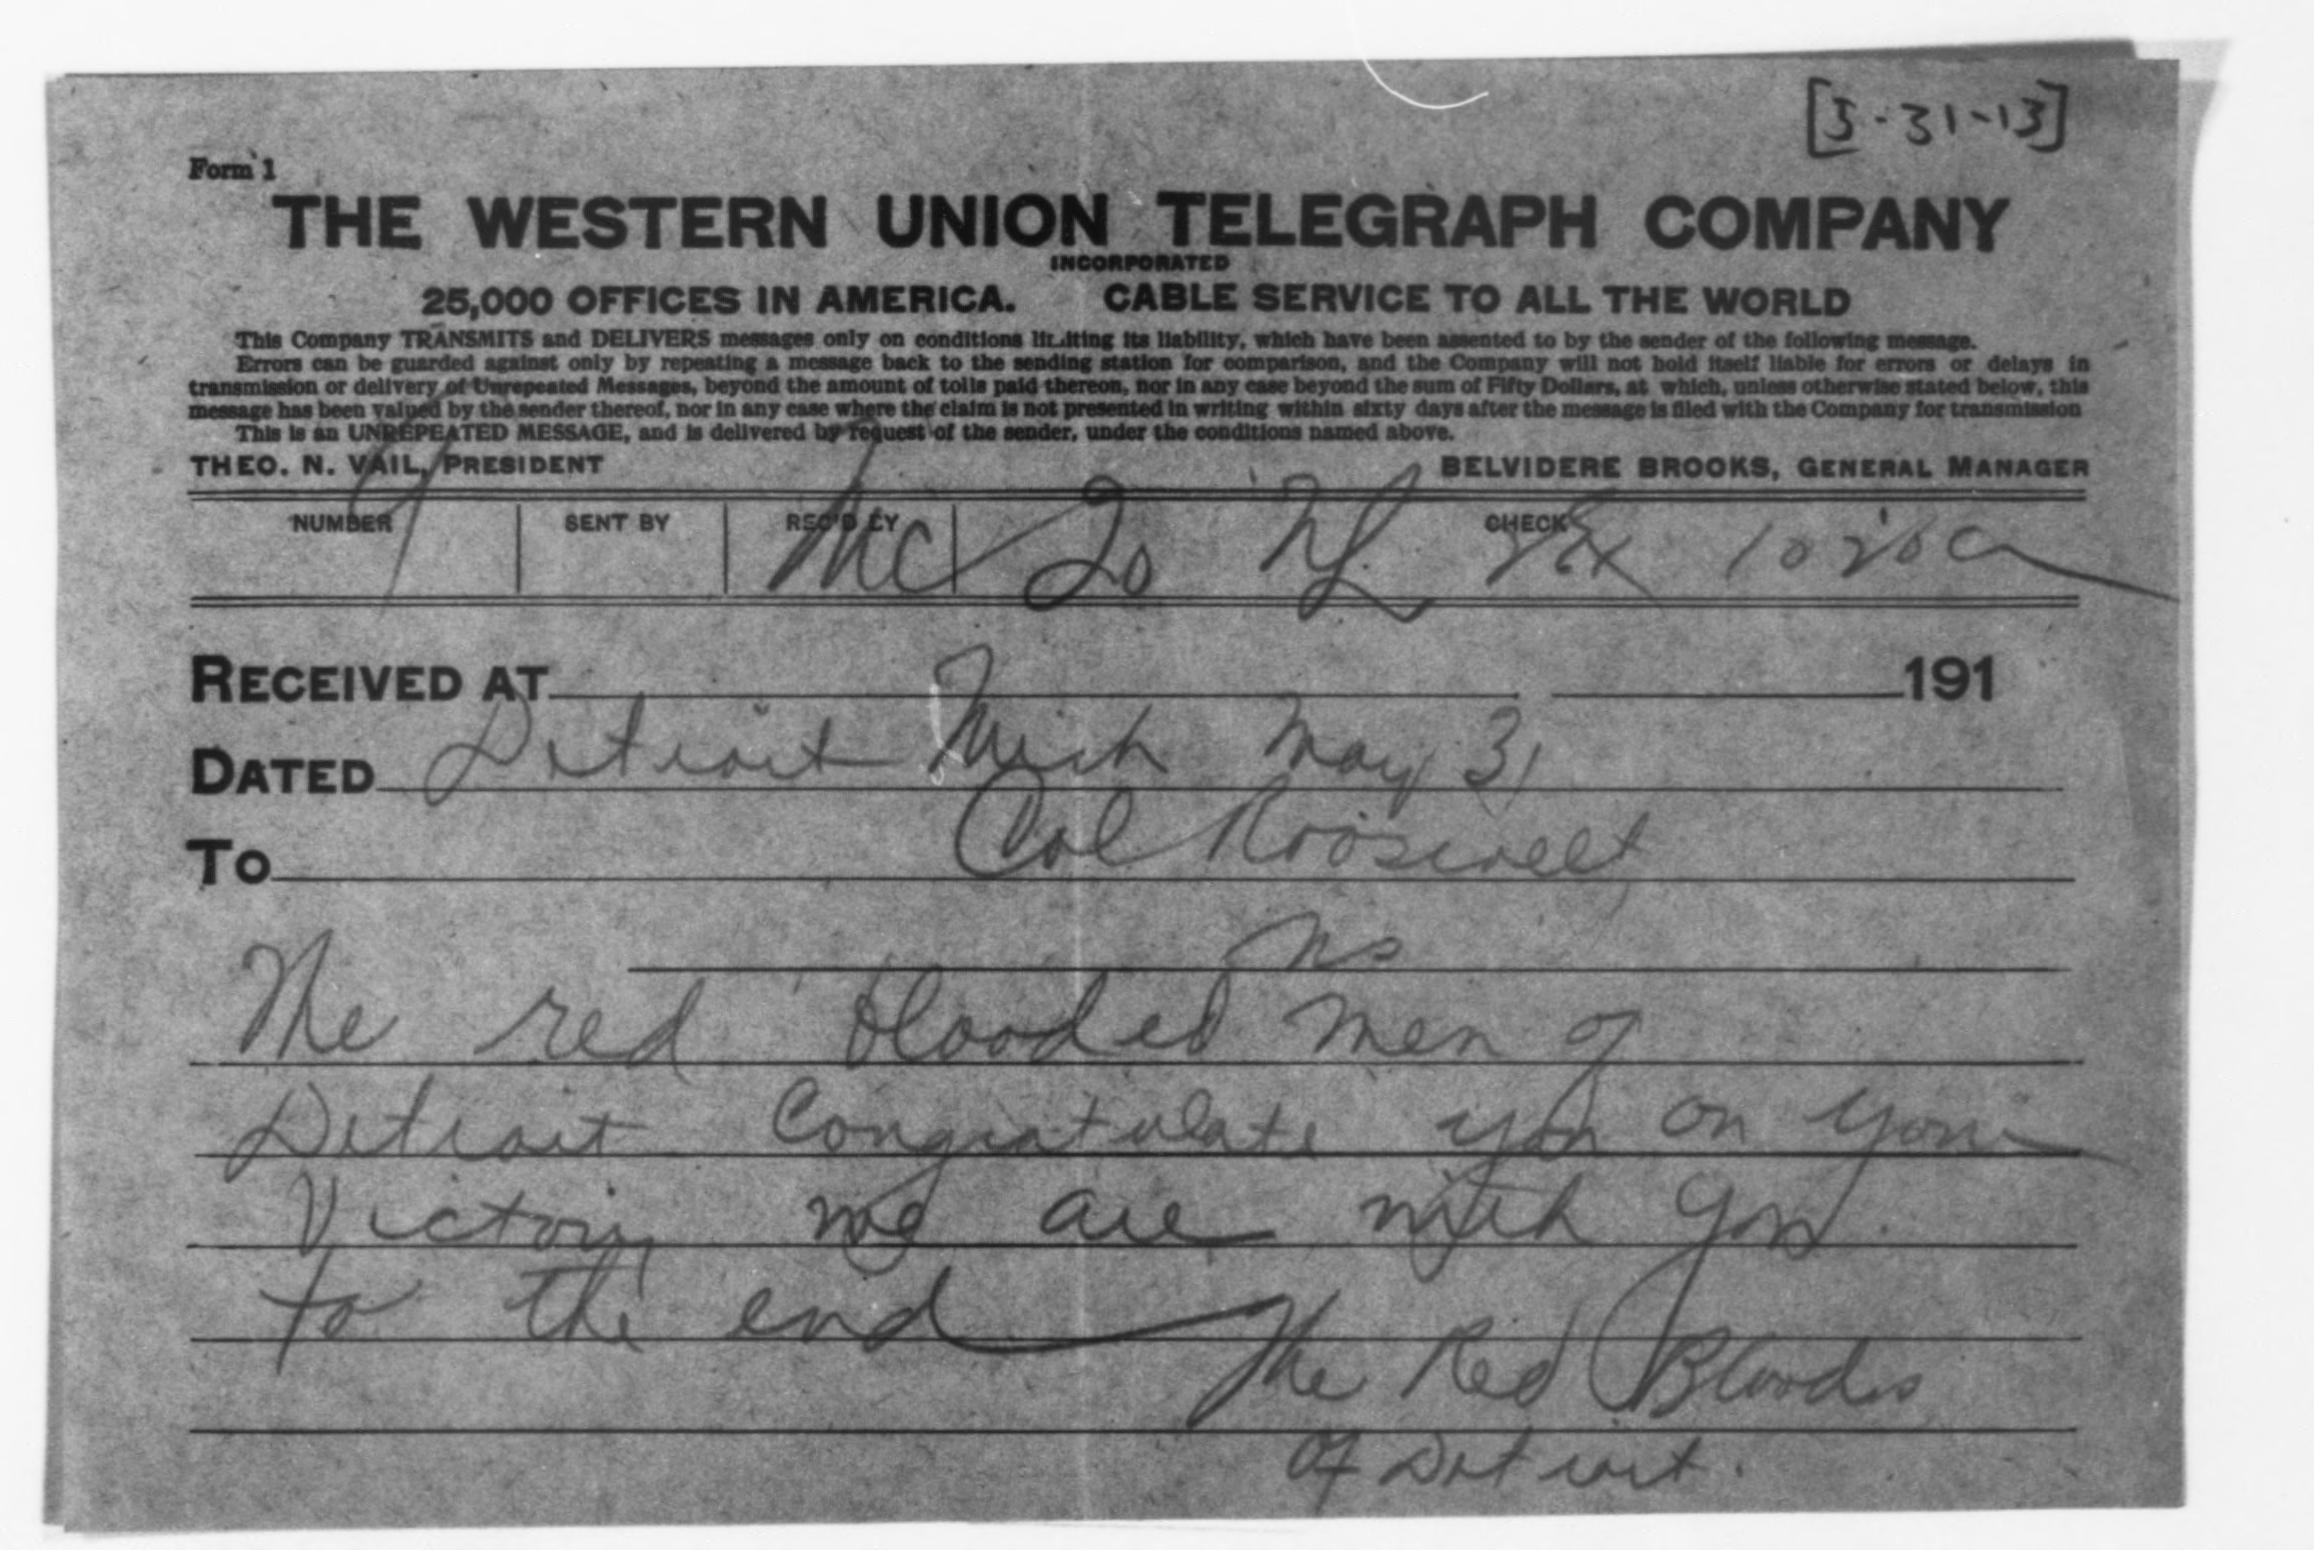 [5-31-13]
Form 1
THE WESTERN UNION TELEGRAPH COMPANY
INCORPORATED
25,000 OFFICES IN AMERICA. CABLE SERVICE TO ALL THE WORLD
This Company TRANSMITS and DELIVERS messages only on conditions limiting its liability, which have been assented to by the sender of the following message.
Errors can be guarded against only by repeating a message back to the sending station for comparison, and the Company will not hold itself liable for errors or delays in
transmission or delivery of Unrepeated Messages, beyond the amount of tolls paid thereon, nor in any case beyond the sum of Fifty Dollars, at which, unless otherwise stated below, this
message has been valued by the sender thereof, nor in any case where the claim is not presented in writing within sixty days after the message is filed with the Company for transmission
This is an UNREPEATED MESSAGE, and is delivered by request of the sender, under the conditions named above.
THEO. N. VAIL, PRESIDENT BELVIDERE BROOKS, GENERAL MANAGER
NUMBER SENT BY REC'D BY CHECK
9 Mc
RECEIVED AT 191
DATED Detroit Mich May 31
TO Col Roosevelt
The red blooded men of
Detroit Congratulate you on your
Victory we are with you
to the end
The Red Bloods
Of Detroit.